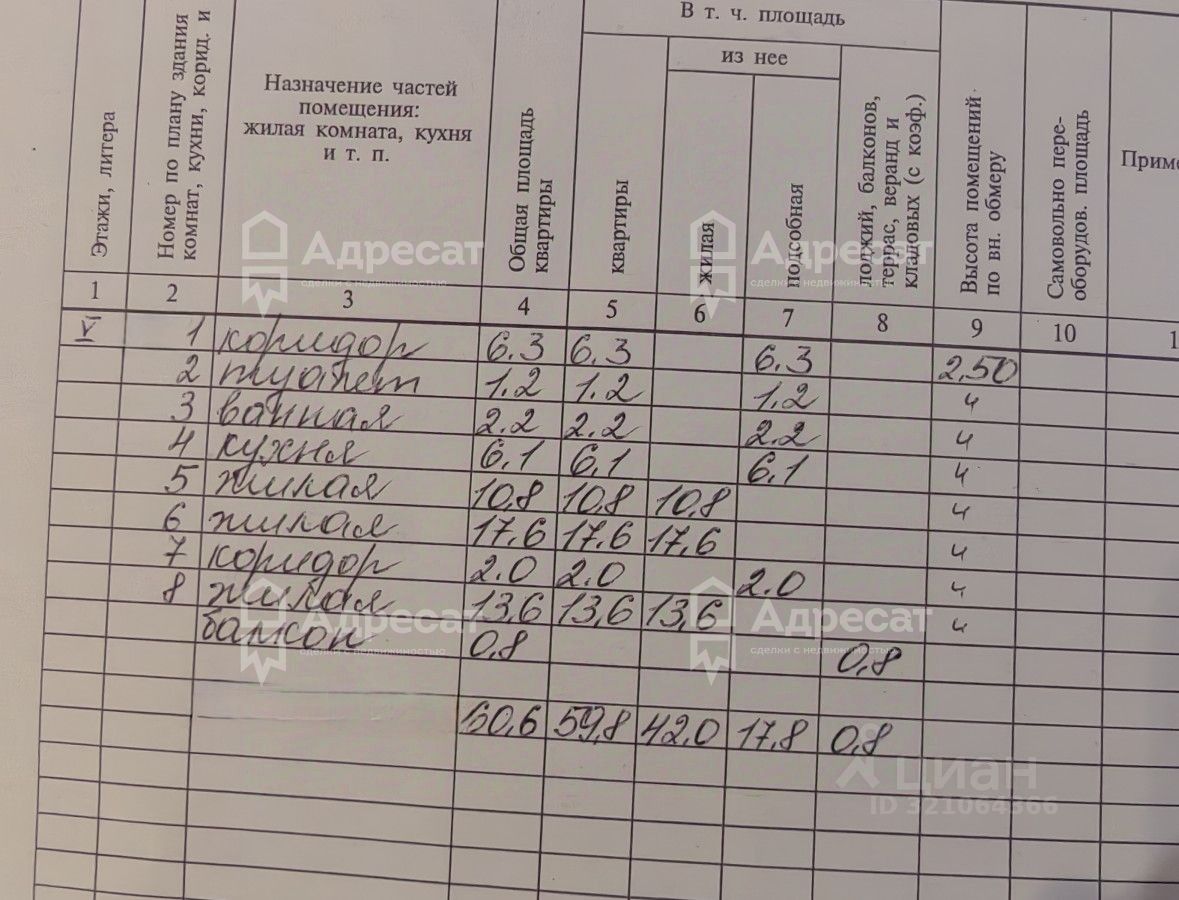 В т. ч. площадь
из нее
Этажи, литера
Номер по плану здания
комнат, кухни, корид. и
Назначение частей
помещения:
жилая комната, кухня
и т. п.
Общая площадь
квартиры
квартиры
жилая
подсобная
лоджий, балконов,
террас, веранд и
кладовых (с коэф.)
Высота помещений
по вн. обмеру
Самовольно пере-
оборудов. площадь
Адресат
сделки с недвижимостью
Адресат
сделки с недвижимостью
1 2 3 4 5 6 7 8 9 10
1 коридор 6.3 6.3 6.3 2,50
2 туалет 1.2 1.2 1.2 ч
3 ванная 2.2 2.2 2.2 ч
4 кухня 6.1 6.1 6.1 ч
5 жилая 10,8 10,8 10,8 ч
6 жилая 17.6 17.6 17.6 ч
7 коридор 2.0 2.0 2.0 ч
8 жилая 13,6 13,6 13,6 ч
балкон 0,8 0,8
Адресат
сделки с недвижимостью
Адресат
сделки с недвижимостью
60,6 59,8 42,0 17,8 0,8
циан
ID 321064366